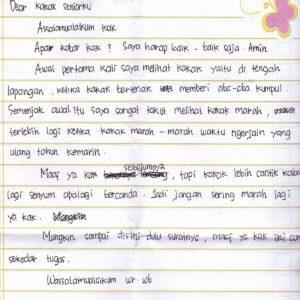 Dear kakak seniorku
Assalamualaikum kak
Apa kabar kak? Saya harap baik-baik saja. Amin
Awal pertama kali saya melihat kakak yaitu di tengah
lapangan, ketika kakak berteriak memberi aba-aba kumpul.
Semenjak awal itu saya sangat takut melihat kakak marah,
terlebih lagi ketika kakak marah-marah waktu ngerjain yang
ulang tahun kemarin.
Maaf ya kak sebelumnya, tapi kakak lebih cantik kalau
lagi senyum apalagi bercanda. Jadi jangan sering marah lagi
ya kak.
Mungkin sampai disini dulu suratnya, maaf ya kak ini
sekedar tugas.
Wassalamualaikum wr. wb